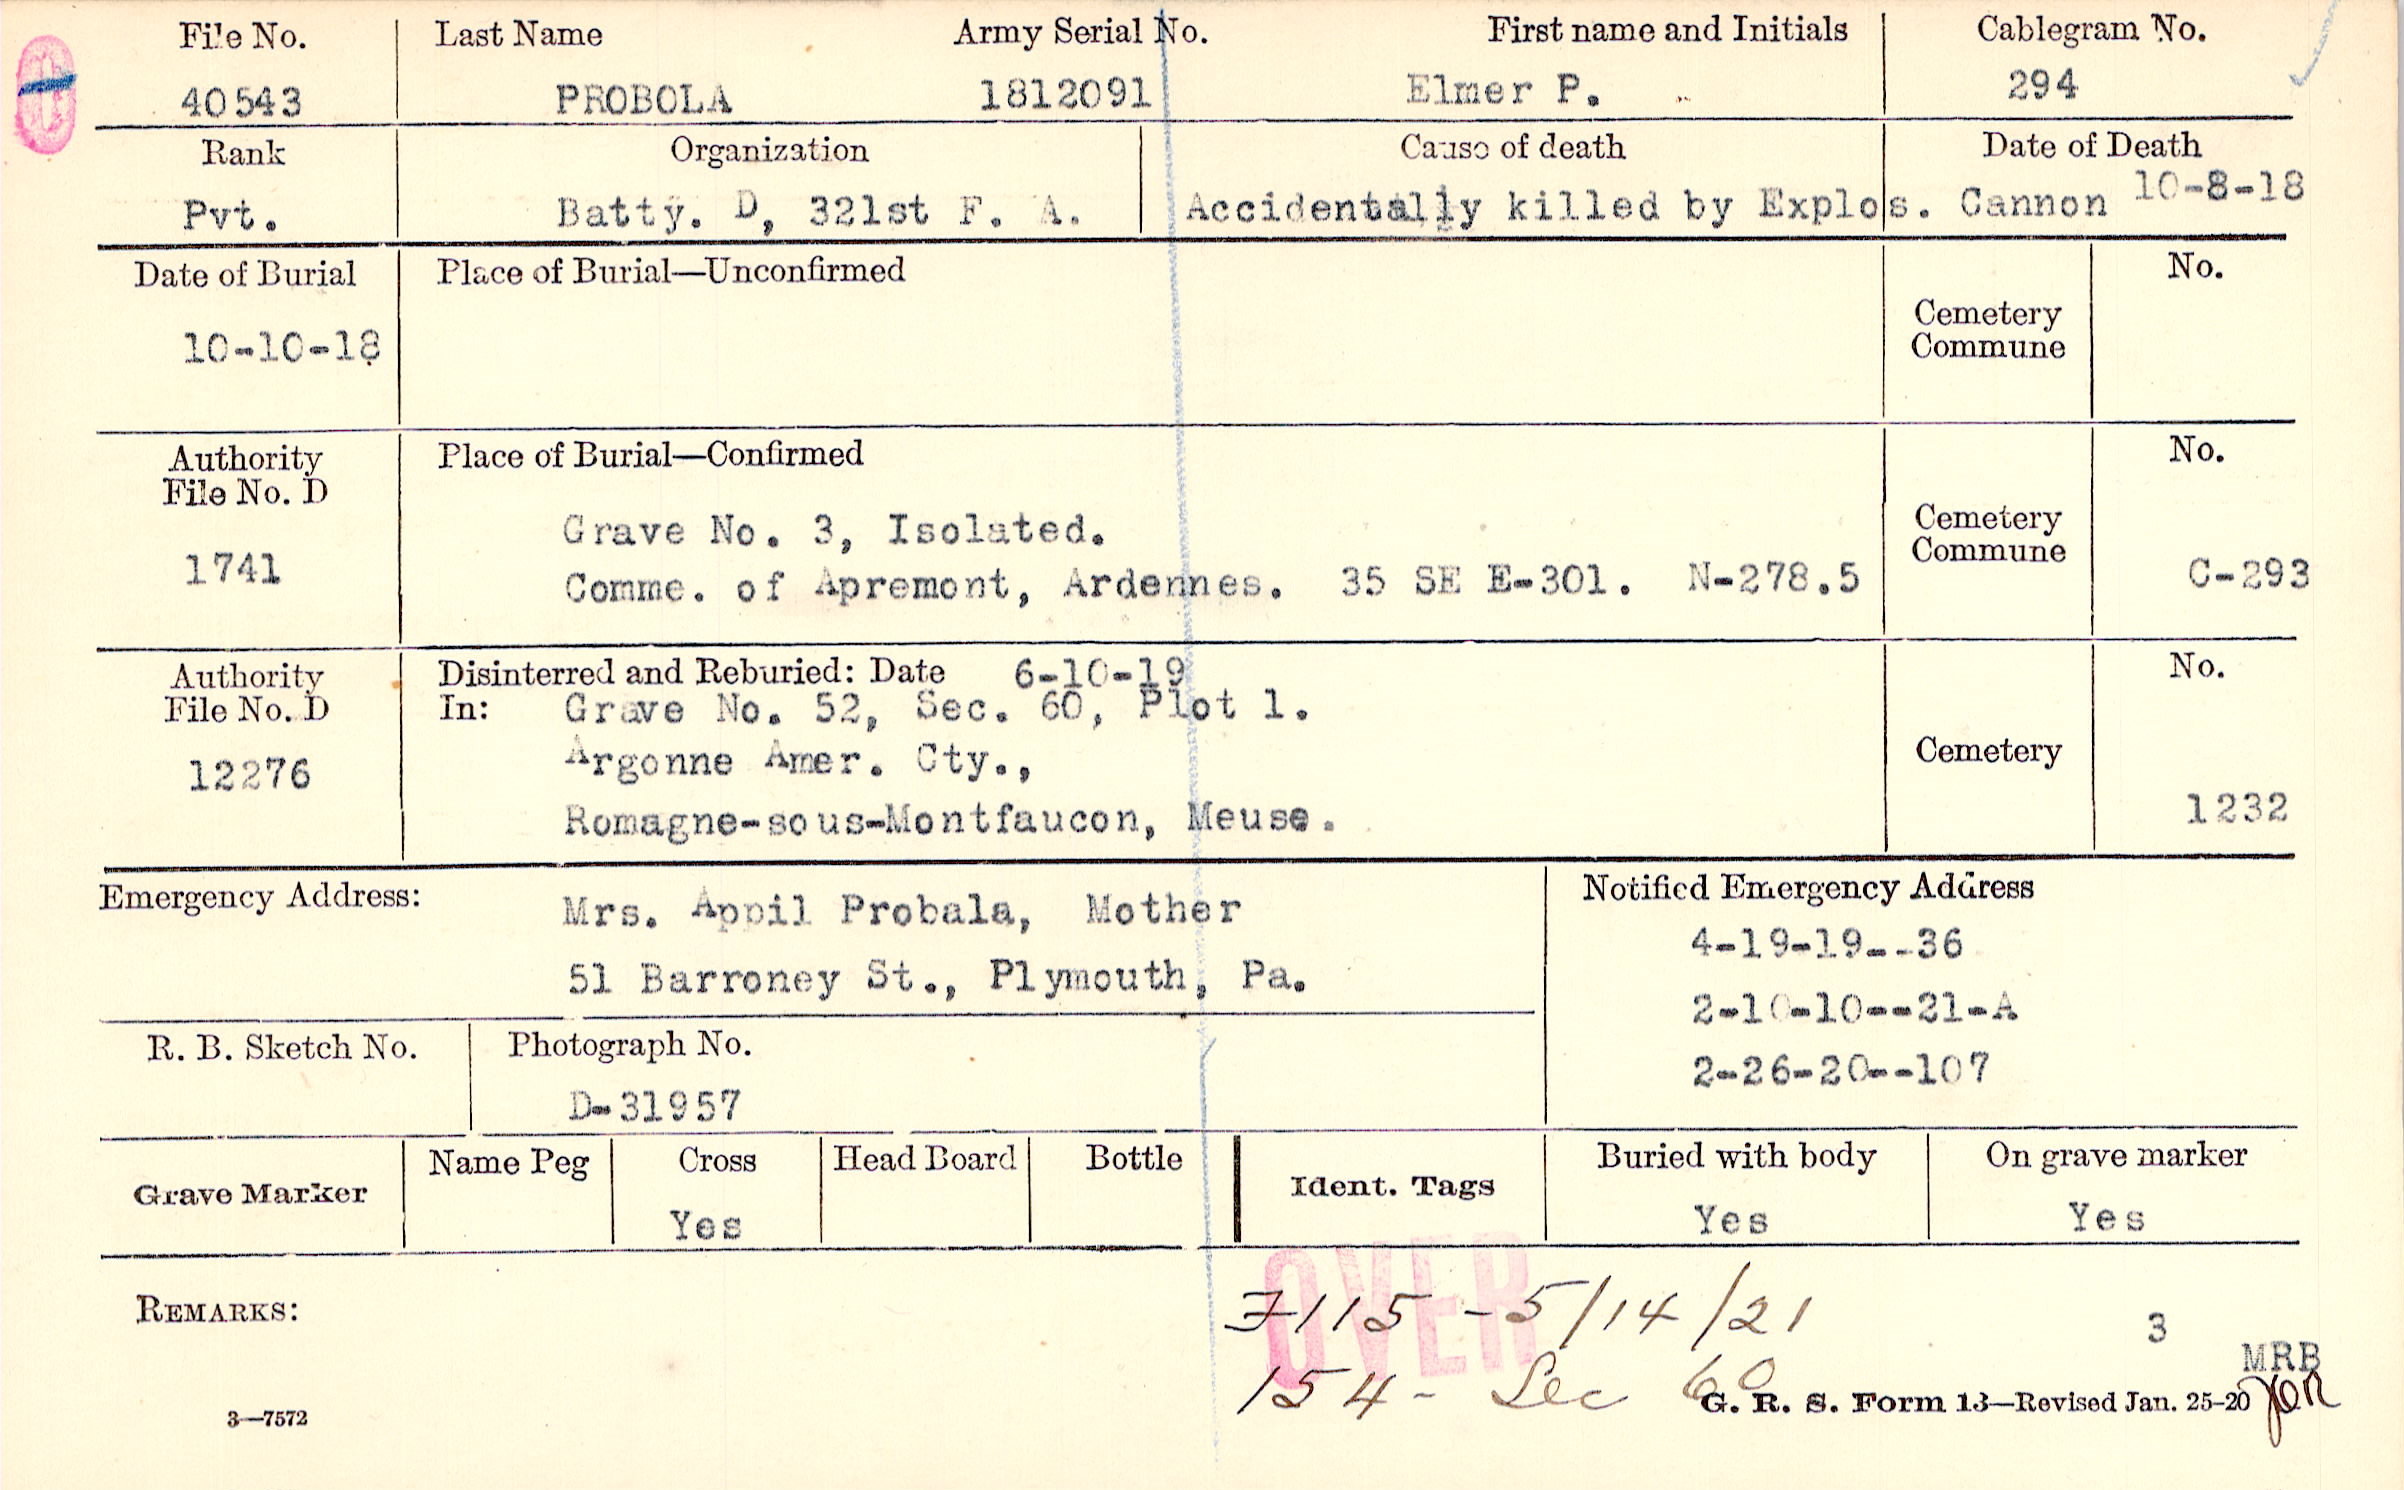 File No. Last Name Army Serial No. First name and Initials Cablegram No.
40543 PROBOLA 1812091 Elmer P. 294
Rank Organization Cause of death Date of Death
Pvt. Batty. D, 321st F. A. Accidentally killed by Explos. Cannon 10-8-18
Date of Burial Place of Burial—Unconfirmed No.
10-10-18
Cemetery
Commune
Authority Place of Burial—Confirmed No.
File No. D
1741
Grave No. 3, Isolated.
Comme. of Apremont, Ardennes. 35 SE E-301. N-278.5
Cemetery
Commune
C-293
Authority Disinterred and Reburied: Date 6-10-19 No.
File No. D In: Grave No. 52, Sec. 60, Plot 1.
12276 Argonne Amer. Cty., Cemetery
Romagne-sous-Montfaucon, Meuse. 1232
Emergency Address: Mrs. Appil Probala, Mother
51 Barroney St., Plymouth, Pa.
Notified Emergency Address
4-19-19--36
2-10-10--21-A
2-26-20--107
R. B. Sketch No. Photograph No.
D-31957
Grave Marker Name Peg Cross Head Board Bottle Ident. Tags Buried with body On grave marker
Yes Yes Yes
OVER
REMARKS: 7115 - 5/14/21 3
MRB
154 - Sec 60
3—7572 G. R. S. Form 13—Revised Jan. 25-20